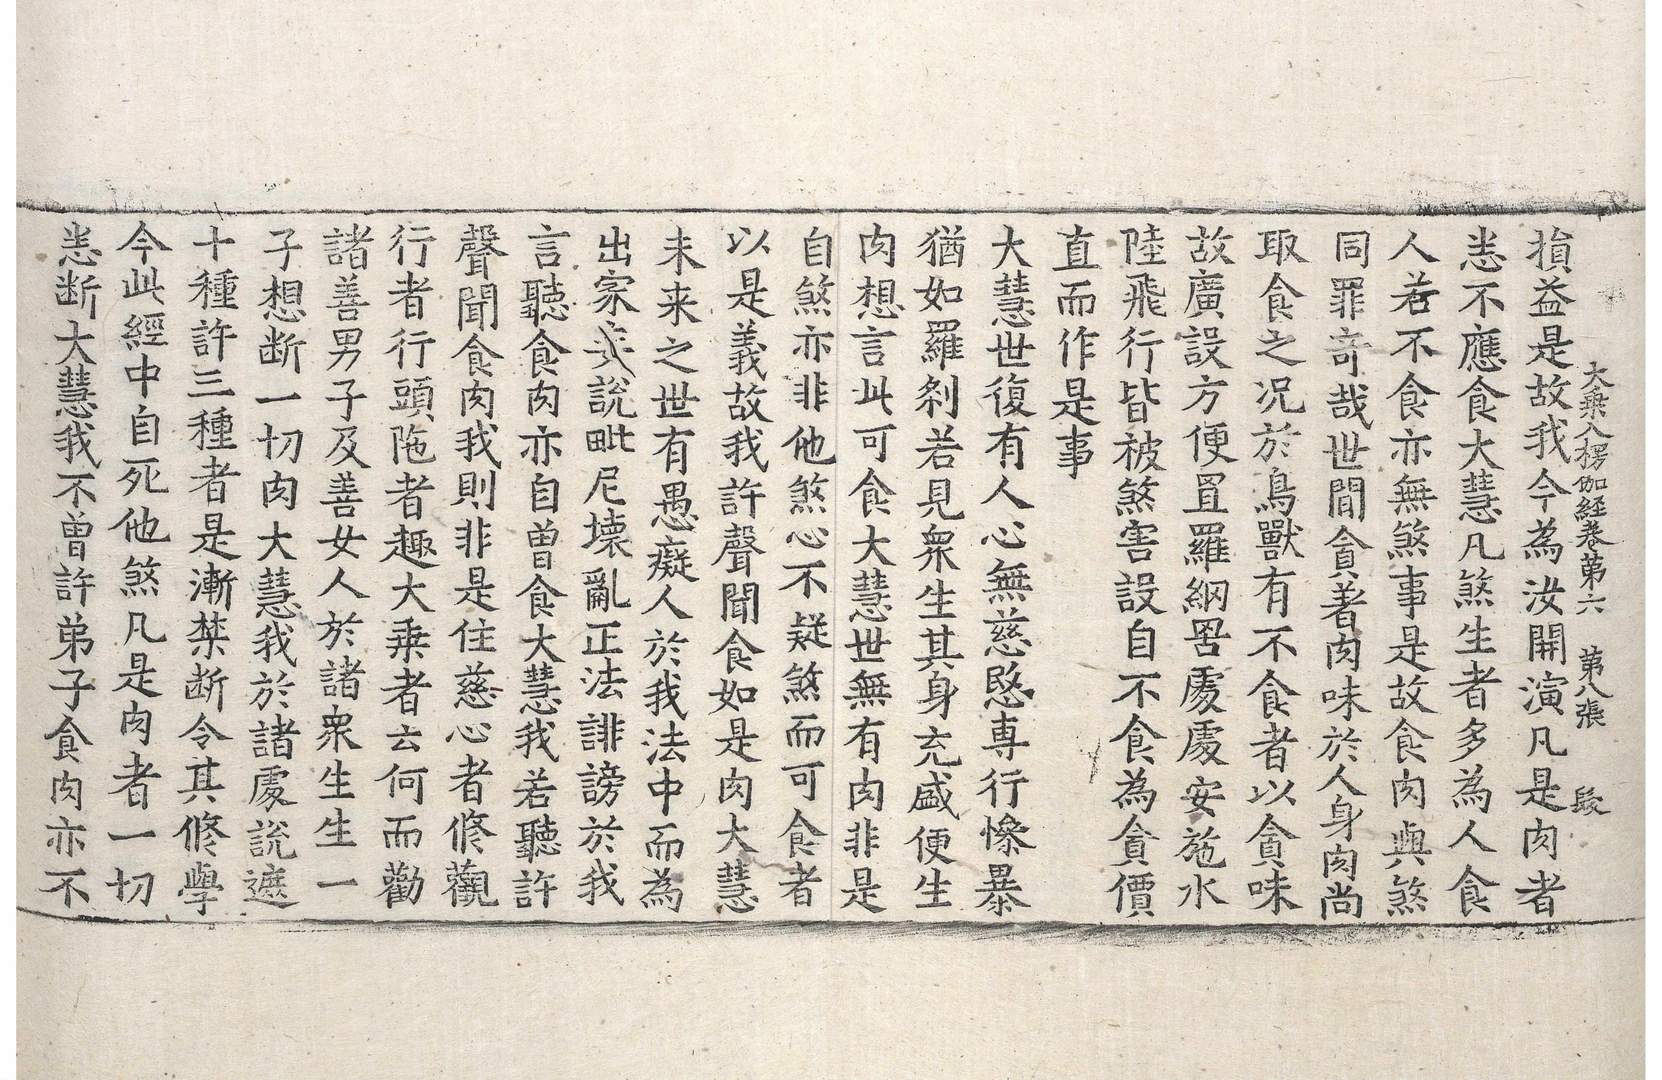 大乘入楞伽經卷第六 第八張 髮
損益是故我今為汝開演凡是肉者
悉不應食大慧凡煞生者多為人食
人若不食亦無煞事是故食肉與煞
同罪奇哉世間貪著肉味於人身肉尚
取食之况於鳥獸有不食者以貪味
故廣設方便罝羅網罟處處安施水
陸飛行皆被煞害設自不食為貪價
直而作是事
大慧世復有人心無慈愍專行慘暴
猶如羅刹若見衆生其身充盛便生
肉想言此可食大慧世無有肉非是
自煞亦非他煞心不疑煞而可食者
以是義故我許聲聞食如是肉大慧
未来之世有愚癡人於我法中而為
出家妄說毗尼壞亂正法誹謗於我
言聽食肉亦自曽食大慧我若聽許
聲聞食肉我則非是住慈心者修觀
行者行頭陁者趣大乘者云何而勸
諸善男子及善女人於諸衆生生一
子想断一切肉大慧我於諸處說遮
十種許三種者是漸禁断令其修學
今此經中自死他煞凡是肉者一切
悉断大慧我不曽許弟子食肉亦不